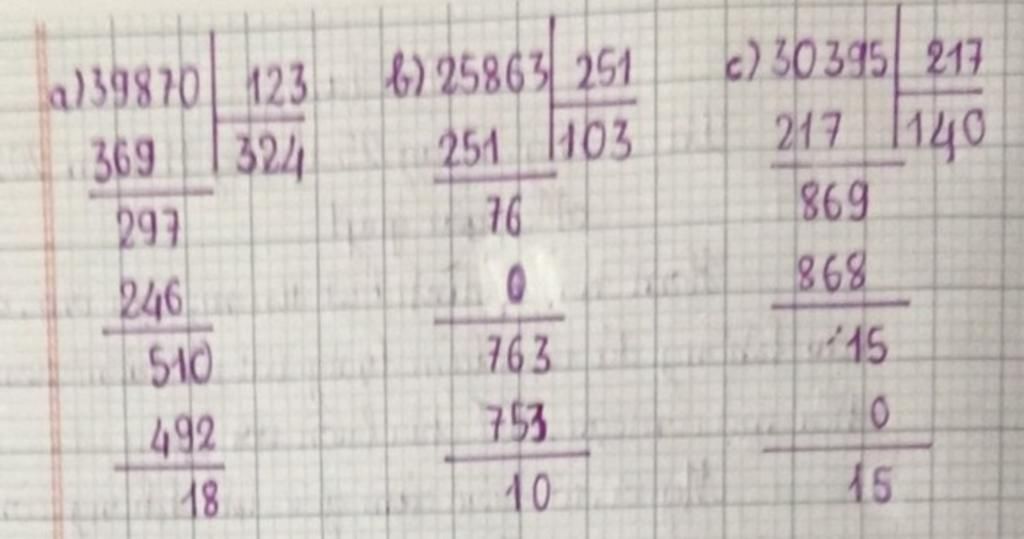 а) 39870 123
369 324
297
246
510
492
18
б) 25863 251
251 103
76
0
763
753
10
c) 30395 217
217 140
869
868
15
0
15